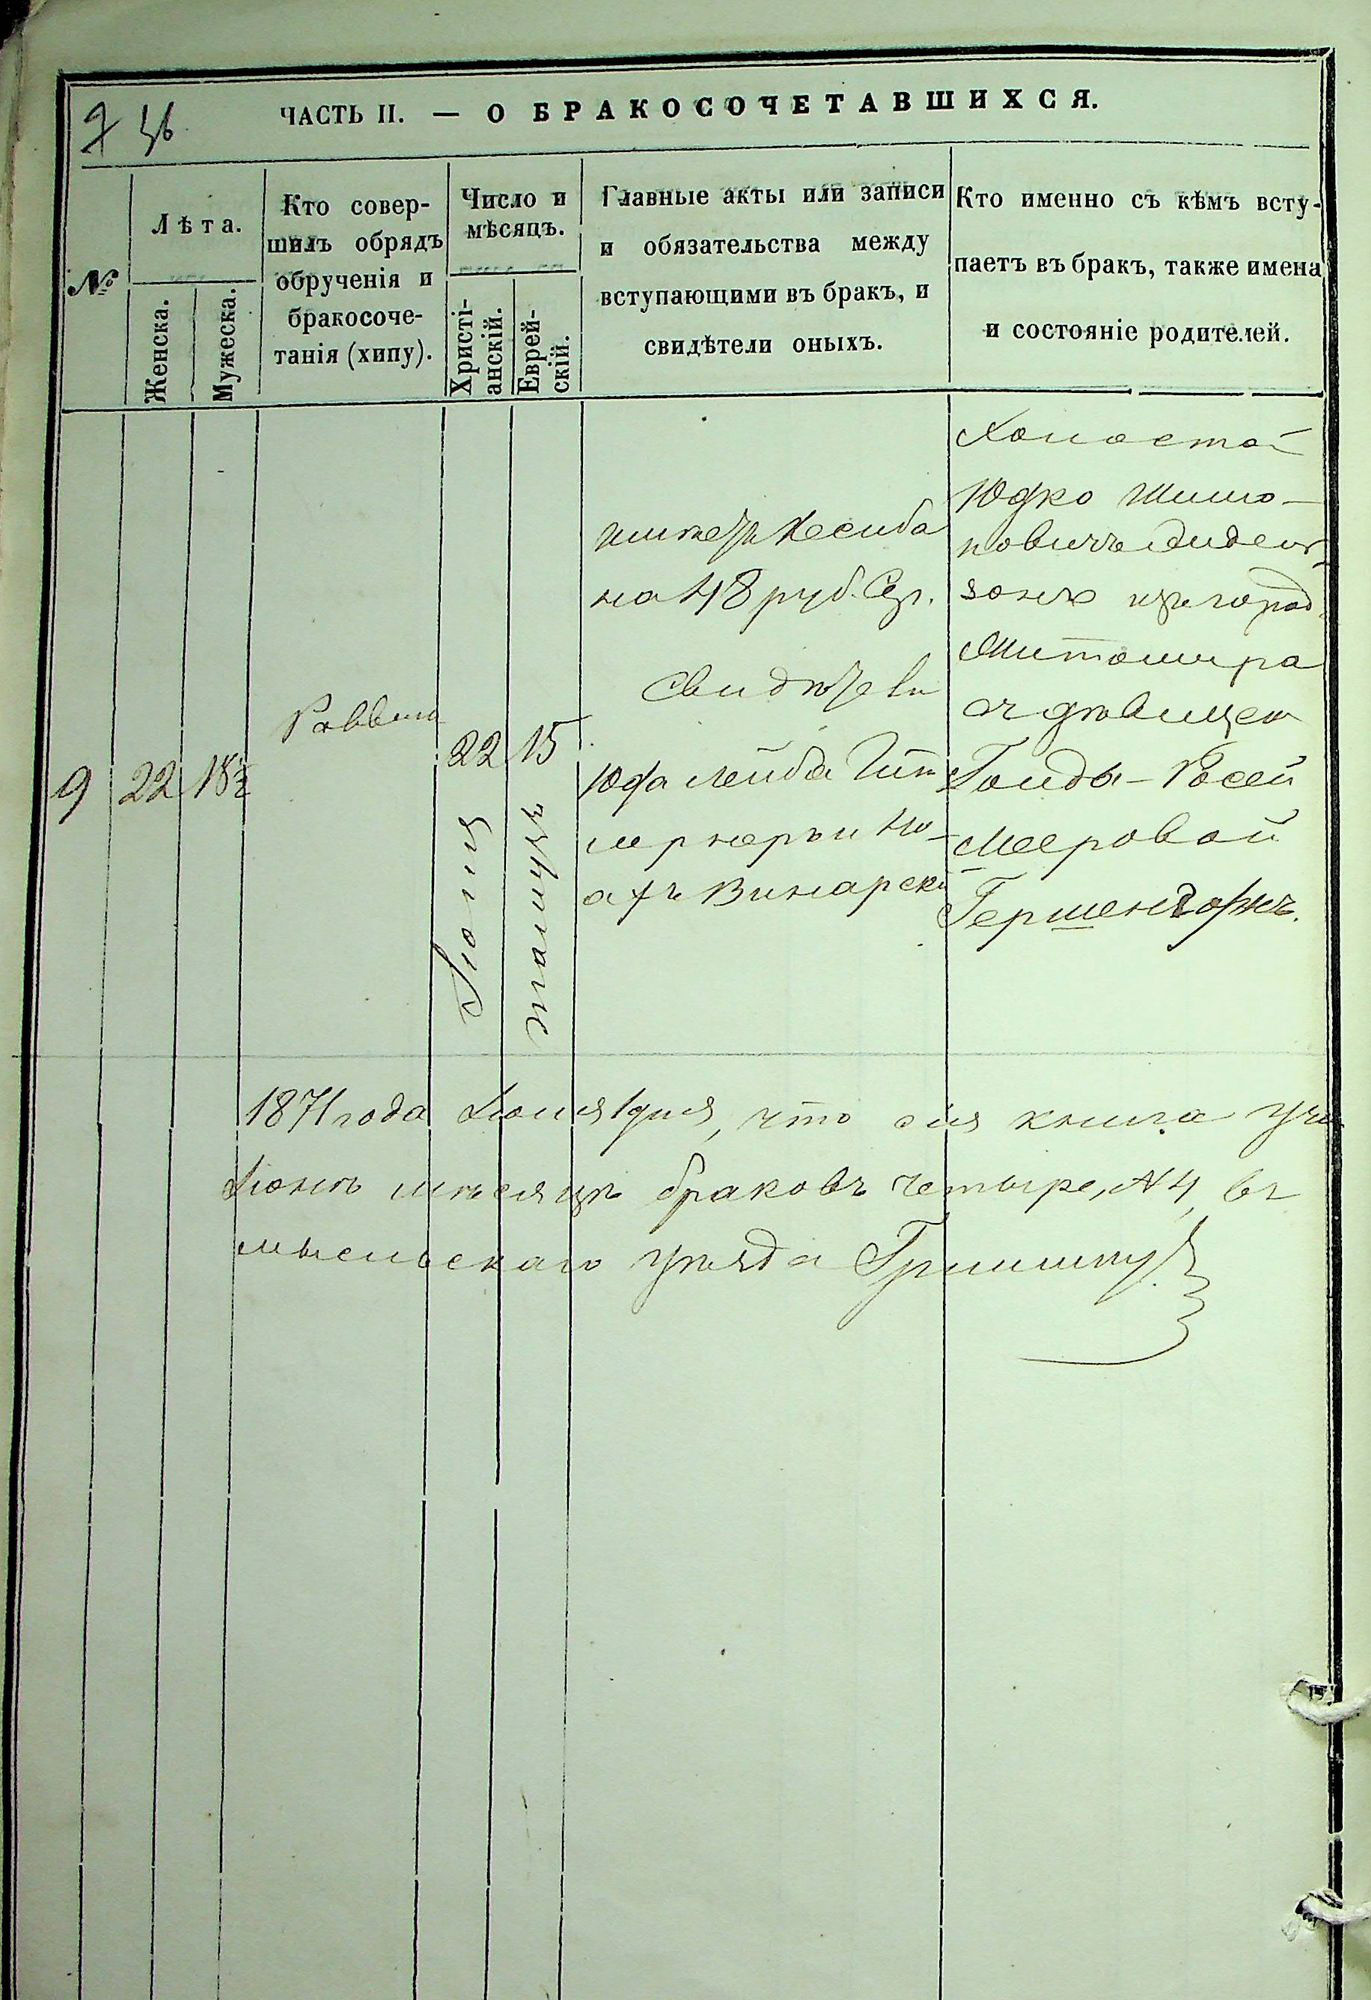 ЧАСТЬ II. — О БРАКОСОЧЕТАВШИХСЯ.
№
Лѣта.
Женска.
Мужеска.
Кто совер-
шилъ обрядъ
обрученія и
бракосоче-
танія (хипу).
Число и
мѣсяцъ.
Христі-
анскій.
Еврей-
скій.
Главные акты или записи
и обязательства между
вступающими въ бракъ, и
свидѣтели оныхъ.
Кто именно съ кѣмъ всту-
паетъ въ бракъ, также имена
и состояніе родителей.
9
22
18½
Раввинъ
22
Іюля
15
тамуzъ
на 48 руб. Сер.
Свидѣтели
Юда Лейба
Винарскій
Холостой
Юдко Шимо-
новичъ
зонъ изъ город.
Житомира
съ дѣвицею
Гольды-Росей
Мееровой
Гершенгорнъ.
1871 года Іюля 1 дня, что сія книга
Іюнѣ мѣсяцѣ браковъ четыре, №4, въ
мысльскаго уѣзда